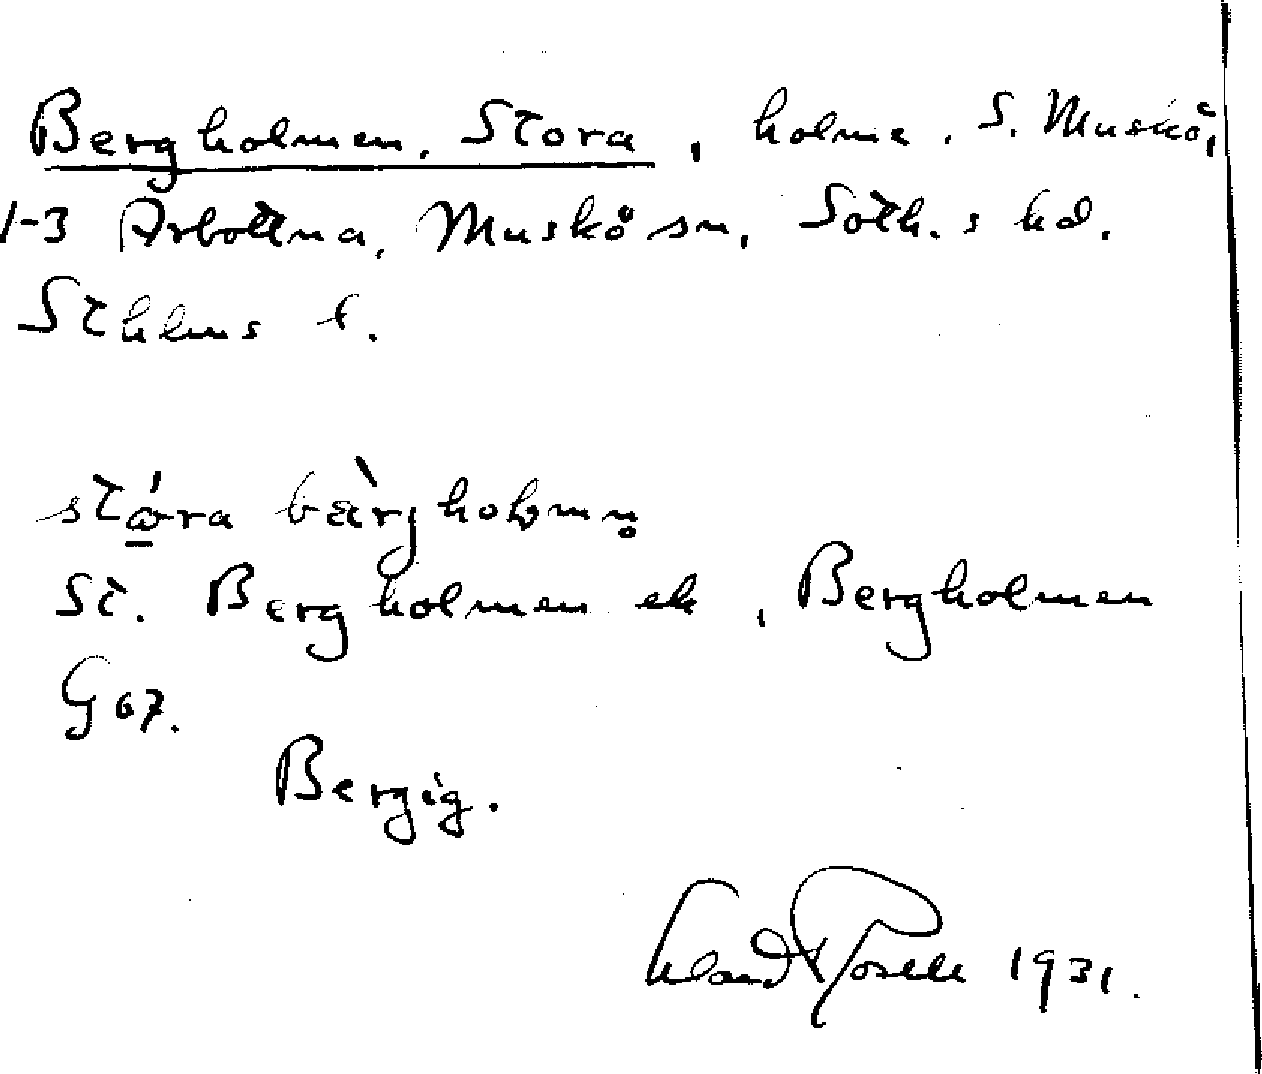 Bergholmen, Stora, holme, S. Muskö,
1-3 Arbottna, Muskö sn, Soth.s hd.
Sthlms l.
stá̱ra bàrjholmn̥
St. Bergholmen ek, Bergholmen
G 67.
Bergig.
1931.